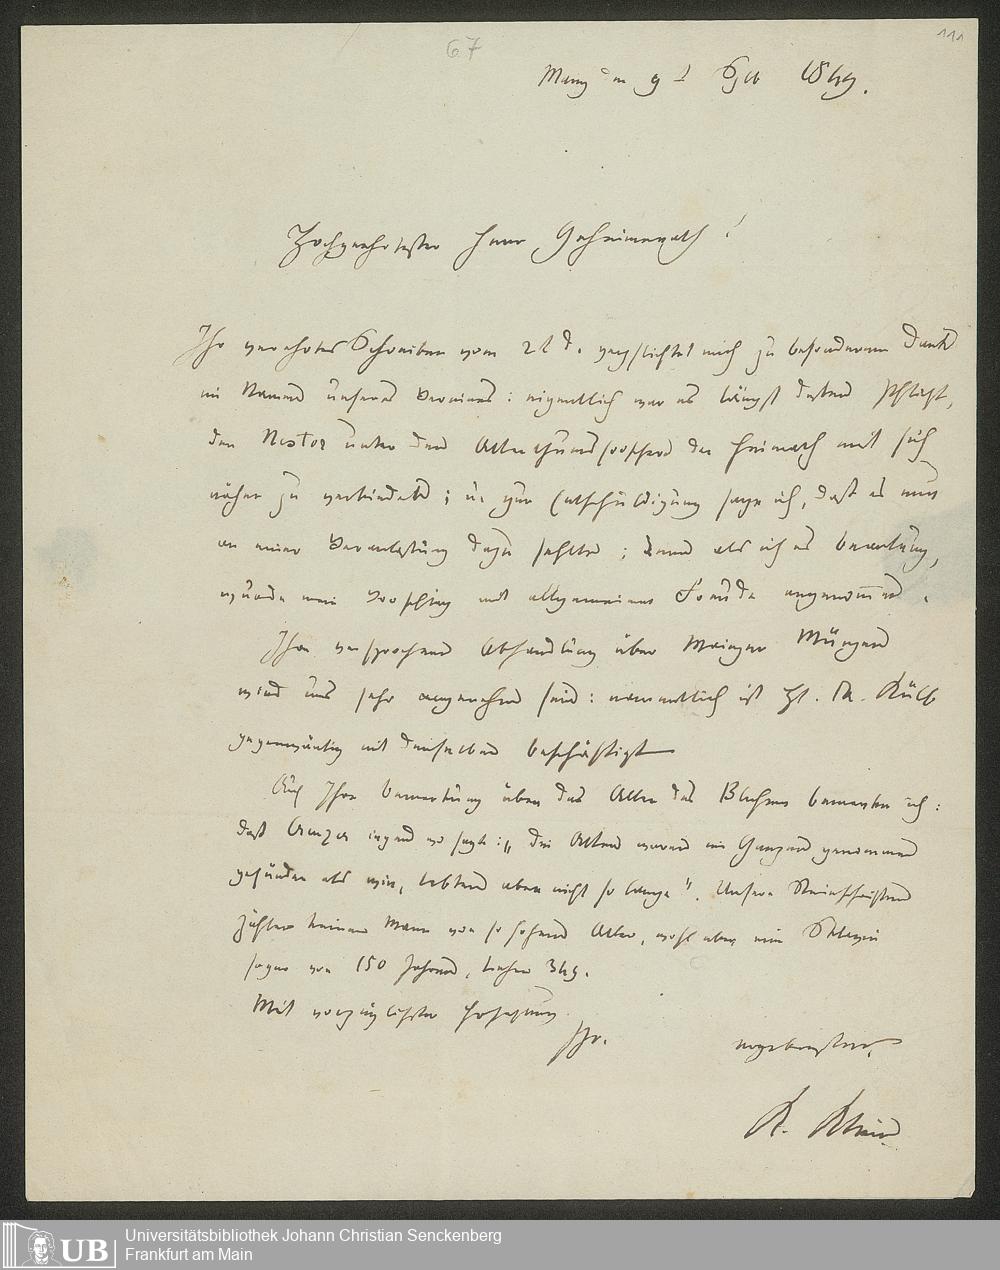 67
111
Mainz den 9 t 1849.
Hochgeehrtester Herr Geheimerath!
Ihr verehrtes Schreiben vom 2t d. verpflichtet mich zu besonderem Dank
im Namen unseres Vereines: eigentlich war es längst dessen Pflicht,
den Nestor unter den Alterthumsforschern der Heimath mit sich
näher zu verbinden; u. zur Entschuldigung sage ich, daß es nur
an einer Veranlassung dazu fehlte; denn als ich es beantrug,
wurde mein Vorschlag mit allgemeiner Freude angenommen.
Ihre versprochene Abhandlung über Mainzer Münzen
wird uns sehr angenehm sein: namentlich ist H. Dr. Külb
gegenwärtig mit denselben beschäftigt
Auf Ihre Bemerkung über das Alter des bemerke ich:
daß Creuzer irgend wo sagt: „die Alten waren im Ganzen genommen
gesünder als wir, lebten aber nicht so lange". Unsere Steinschriften
zählen keinen Mann von so hohem Alter, wohl aber eine Sklavin
sogar von 150 Jahren, Lehne 349.
Mit vorzüglichster Hochachtung
Ihr.
ergebenster
K. Klein
Universitätsbibliothek Johann Christian Senckenberg
Frankfurt am Main
UB